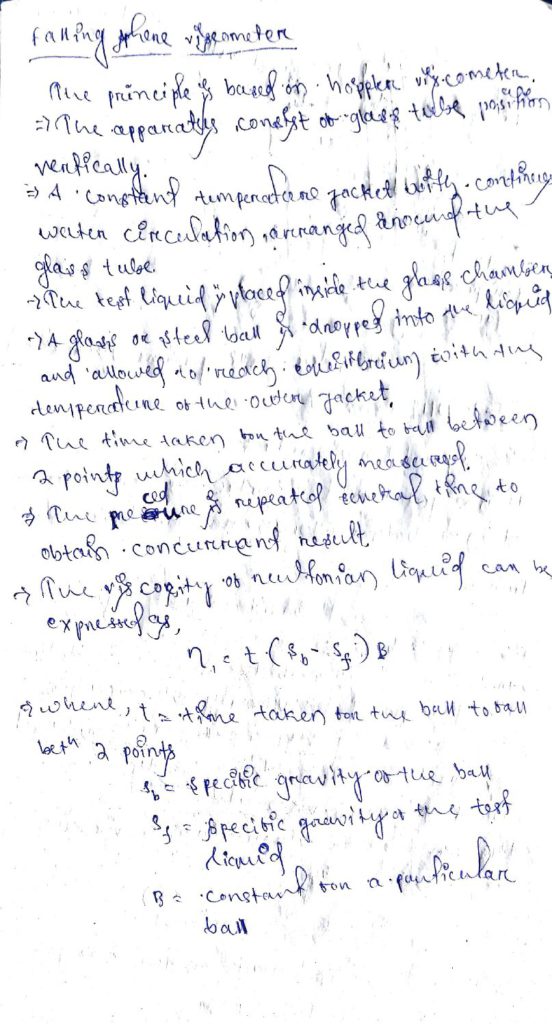 Falling sphere viscometer
The principle is based on hoppler viscometer.
⇒ The apparatus consist of glass tube position
vertically.
⇒ A constant temperature jacket with continues
water circulation, arranged around the
glass tube.
→ The test liquid is placed inside the glass chamber
→ A glass or steel ball is dropped into the liquid
and allowed to reach equilibrium with the
temperature of the outer jacket.
→ The time taken for the ball to fall between
2 points which accurately measured.
⇒ The procedure is repeated several time to
obtain concurrant result.
→ The viscosity of newtonian liquid can be
expressed as,
η₁ = t (S_b - S_f) B
→ where, t = time taken for the ball to fall
betⁿ 2 points
S_b = specific gravity of the ball
S_f = specific gravity of the test
liquid
B = constant for a particular
ball